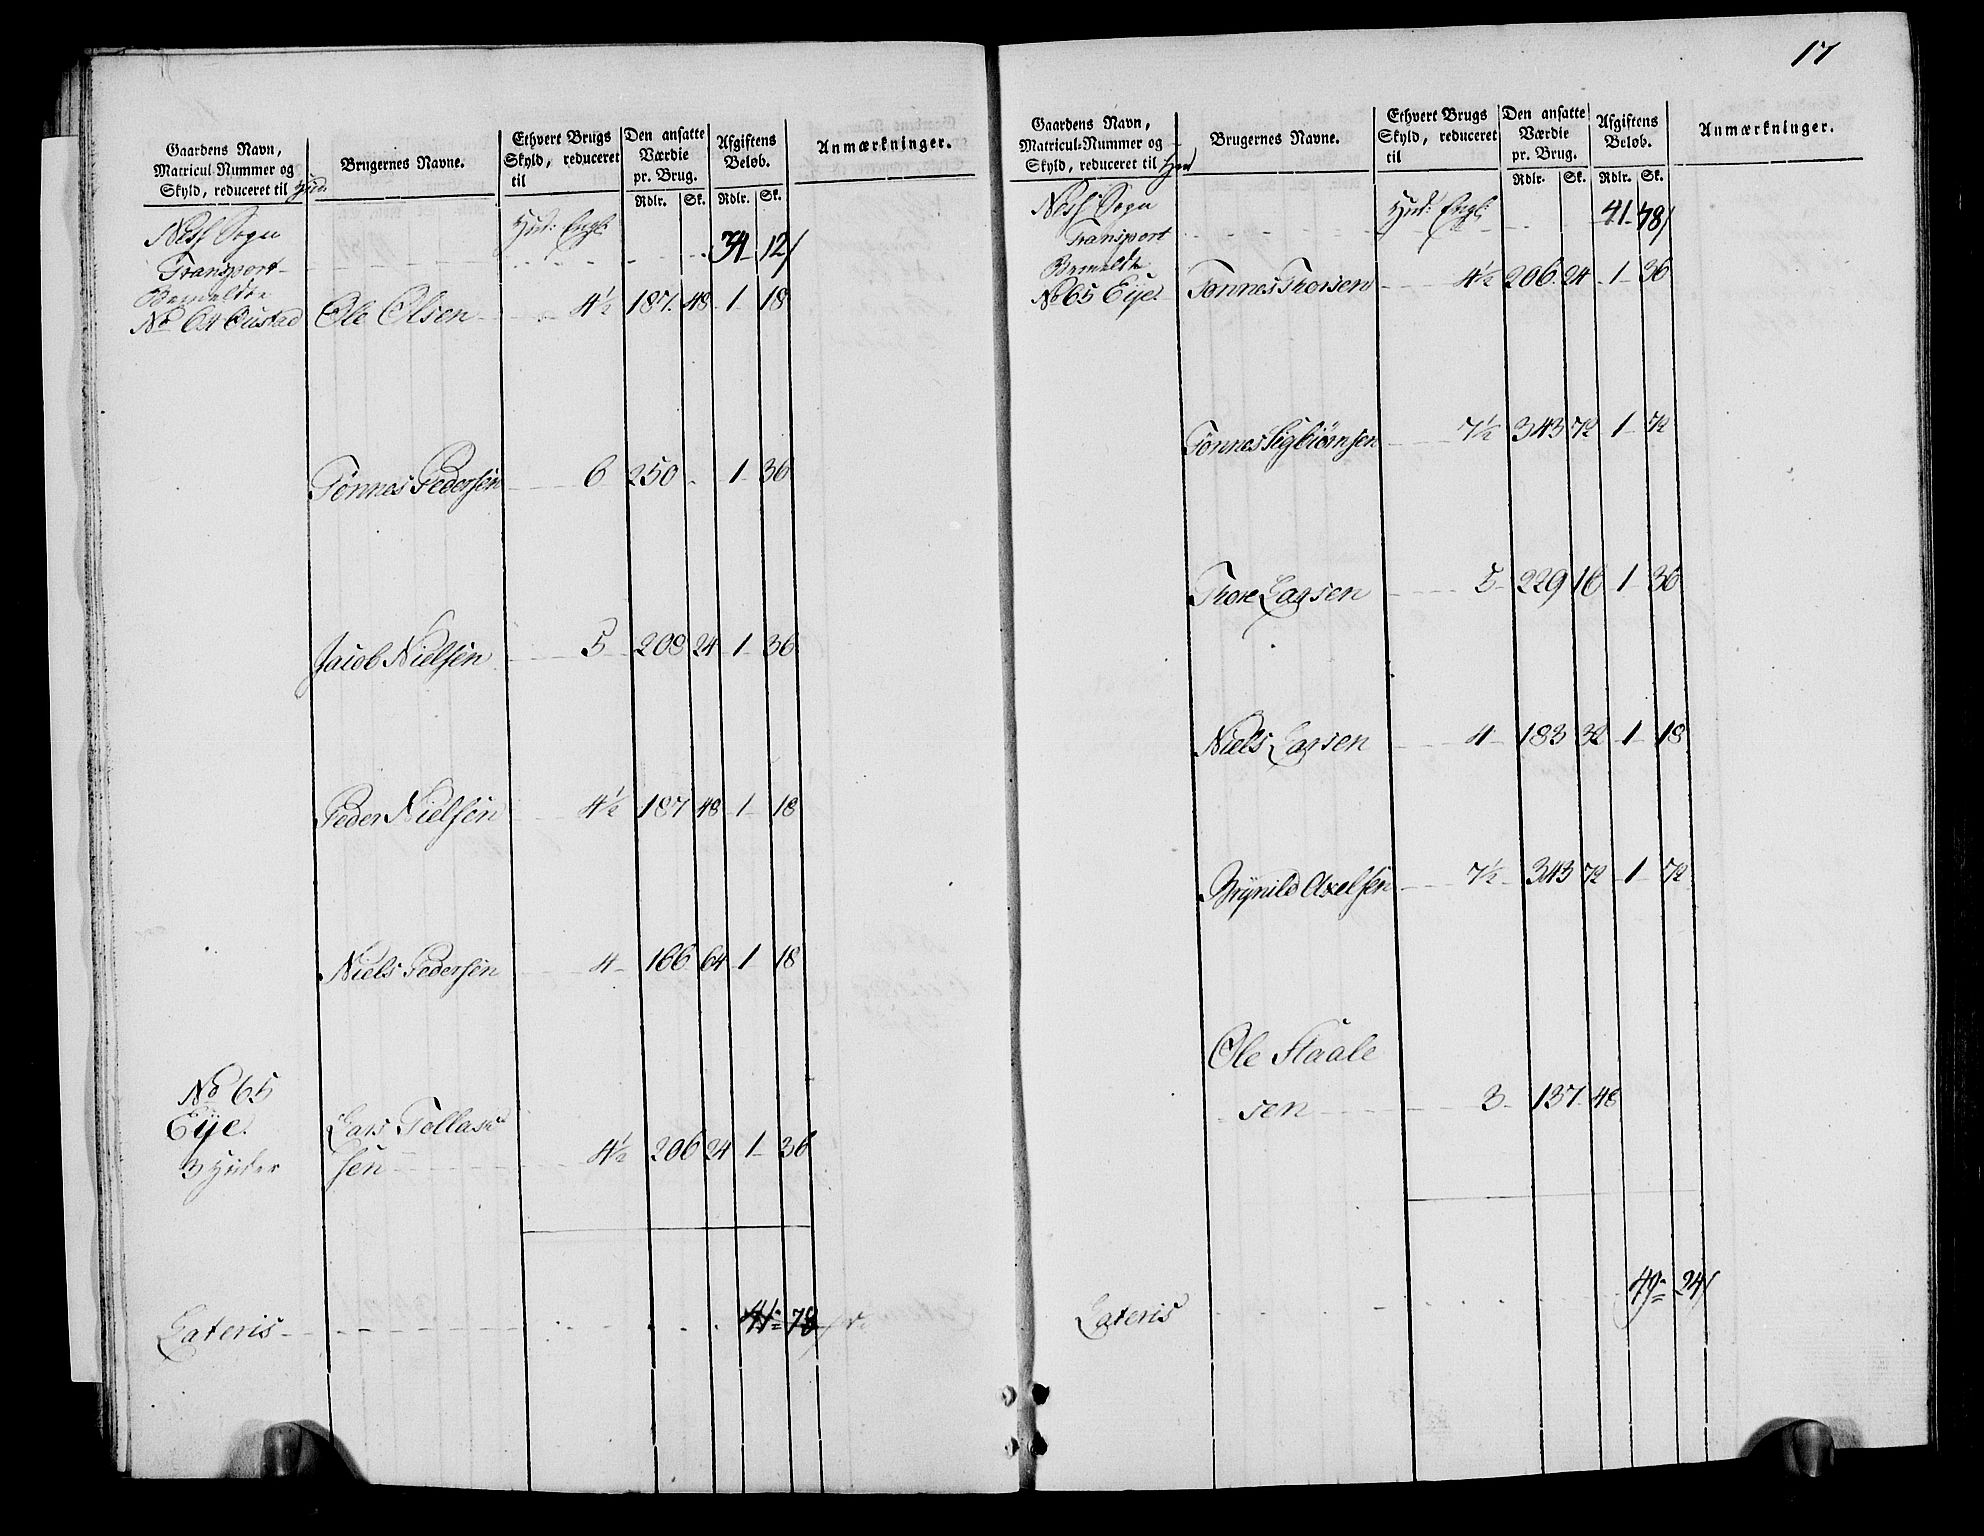 Gaardens Navn,
Matricul-Nummer og
Skyld, reduceret til Hud:
Brugernes Navne.
Ethvert Brugs
Skyld, reduceret
til
Den ansatte
Værdie
pr. Brug.
Afgiftens
Beløb.
Anmærkninger.
Rdlr. Sk. Rdlr. Sk.
Ness Sogn Hud: Engl:
Transport 34 12
Bemeldte
No 64 Ole Olsen 4½ 187 48 1 18
Tønnes Pedersen 6 250 - 1 36
Jacob Nielsen 5 208 24 1 36
Peder Nielsen 4½ 187 48 1 18
Niels Pedersen 4 166 64 1 18
No 65
Eije. Lars Tollas=
3 Huder sen 4½ 206 24 1 36
Lateris 41 78
17
Gaardens Navn,
Matricul-Nummer og
Skyld, reduceret til Hud
Brugernes Navne.
Ethvert Brugs
Skyld, reduceret
til
Den ansatte
Værdie
pr. Brug.
Afgiftens
Beløb.
Anmærkninger.
Rdlr. Sk. Rdlr. Sk.
Ness Sogn Hud: Engl: 41 78
Transport
Bemeldte
No 65 Eije Tønnes Thorsen 4½ 206 24 1 36
Tønnes Sigbiørnsen 7½ 343 72 1 72
Thore Larsen 5 229 16 1 36
Niels Larsen 4 183 32 1 18
Brynild Axelsen 7½ 343 72 1 72
Ole Staale
sen 3 137 48
Lateris 49 24